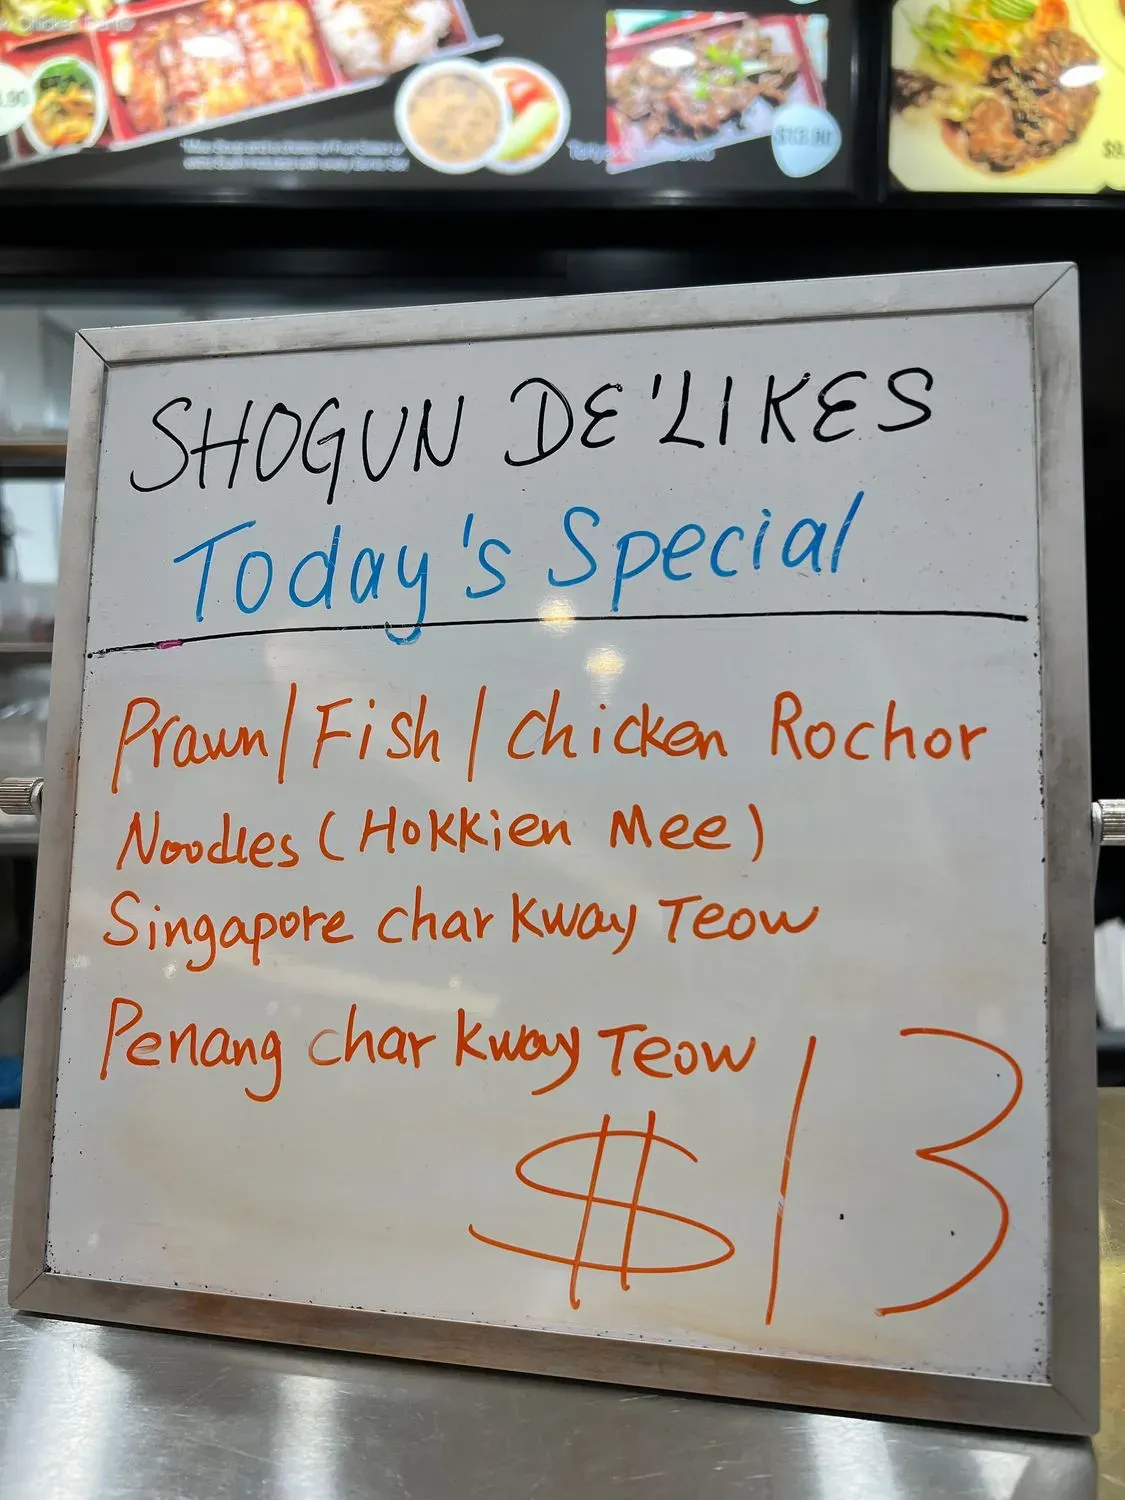 Chicken Bento
$13.90
$9.
SHOGUN DE'LIKES
Today's Special
Prawn/Fish/chicken Rochor
Noodles (Hokkien Mee)
Singapore char Kway Teow
Penang char Kway Teow
$13